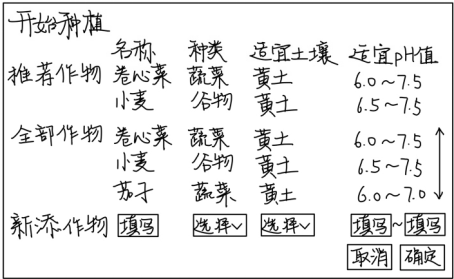 开始种植
名称 种类 适宜土壤 适宜pH值
推荐作物 卷心菜 蔬菜 黄土 6.0~7.5
小麦 谷物 黄土 6.5~7.5
全部作物 卷心菜 蔬菜 黄土 6.0~7.5
小麦 谷物 黄土 6.5~7.5
茄子 蔬菜 黄土 6.0~7.0
新添作物 填写 选择 选择 填写~填写
取消 确定